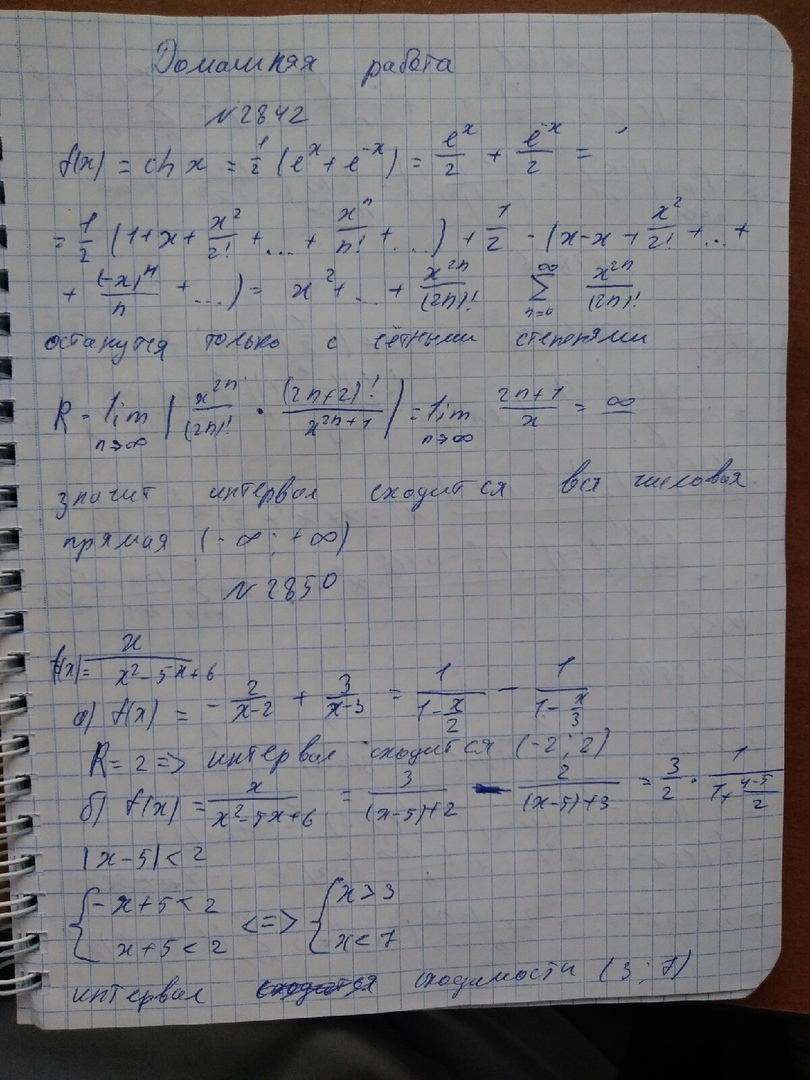 Домашняя работа
№2842
f(x) = ch x = 1/2 (e^x + e^-x) = e^x/2 + e^-x/2 =
= 1/2 (1+x+ x^2/2! + ... + x^n/n! + ...) + 1/2 - (x-x + x^2/2! + ... +
+ (-x)^n/n + ...) = x^2 + ... + x^2n/(2n)! ∑_{n=0}^{∞} x^2n/(2n)!
останутся только с чётными степенями
R = lim_{n→∞} | x^2n/(2n)! · (2n+2)!/x^{2n+1} | = lim_{n→∞} (2n+1)/x = ∞
значит интервал сходится вся числовая
прямая (-∞; +∞)
№2850
f(x) = x/(x^2-5x+6)
а) f(x) = - 2/(x-2) + 3/(x-3) = 1/(1-x/2) - 1/(1-x/3)
R = 2 => интервал сходится (-2; 2)
б) f(x) = x/(x^2-5x+6) = 3/((x-5)+2) - 2/((x-5)+3) = 3/2 · 1/(1+ (4-5)/2)
|x-5| < 2
{ -x+5<2 <=> { x>3
x+5<2 x<7
интервал сходимости (3; 7)